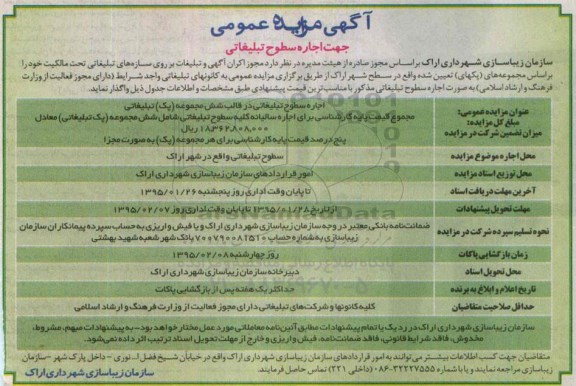 آگهی مزایده عمومی
جهت اجاره سطوح تبلیغاتی
سازمان زیباسازی شهرداری اراک براساس مجوز صادره از هیئت مدیره در نظر دارد مجوز اکران آگهی و تبلیغات بر روی سازه‌های تبلیغاتی تحت مالکیت خود را
براساس مجموعه‌های (پکهای) تعیین شده واقع در سطح شهر اراک از طریق برگزاری مزایده عمومی به کانونهای تبلیغاتی واجد شرایط (دارای مجوز فعالیت از وزارت
فرهنگ و ارشاد اسلامی) به صورت اجاره سطوح تبلیغاتی مذکور با مناسب‌ترین قیمت پیشنهادی طبق مشخصات و اطلاعات جدول ذیل واگذار نماید.
عنوان مزایده عمومی: اجاره سطوح تبلیغاتی در قالب شش مجموعه (پک) تبلیغاتی
مبلغ کل مزایده: مجموع قیمت پایه کارشناسی برای اجاره سالیانه کلیه سطوح تبلیغاتی شامل شش مجموعه (پک تبلیغاتی) معادل ۱۸،۳۶۲،۸۰۸،۰۰۰ ریال
میزان تضمین شرکت در مزایده پنج درصد قیمت پایه کارشناسی برای هر مجموعه (پک) به صورت مجزا
محل اجاره موضوع مزایده سطوح تبلیغاتی واقع در شهر اراک
محل توزیع اسناد مزایده امور قراردادهای سازمان زیباسازی شهرداری اراک
آخرین مهلت دریافت اسناد تا پایان وقت اداری روز پنجشنبه ۱۳۹۵/۰۱/۲۶
مهلت تحویل پیشنهادات از تاریخ ۱۳۹۵/۰۱/۲۸ تا پایان وقت اداری روز ۱۳۹۵/۰۲/۰۷
نحوه تسلیم سپرده شرکت در مزایده ضمانت‌نامه بانکی معتبر در وجه سازمان زیباسازی شهرداری اراک و یا فیش واریزی به حساب سپرده پیمانکاران سازمان
زیباسازی به شماره حساب ۷۰۰۷۹۰۰۸۱۵۱۰ بانک شهر شعبه شهید بهشتی
زمان بازگشایی پاکات روز چهارشنبه ۱۳۹۵/۰۲/۰۸
محل تحویل اسناد دبیرخانه سازمان زیباسازی شهرداری اراک
تاریخ اعلام و ابلاغ به برنده حداکثر یک هفته پس از بازگشایی پاکات
حداقل صلاحیت متقاضیان کلیه کانونها و شرکت‌های تبلیغاتی دارای مجوز فعالیت از وزارت فرهنگ و ارشاد اسلامی
سازمان زیباسازی شهرداری اراک در رد یک یا تمام پیشنهادات مطابق آئین‌نامه معاملاتی مورد عمل مختار خواهد بود - به پیشنهادات مبهم، مشروط،
مخدوش، فاقد شرایط قانونی، فاقد ضمانت‌نامه، فیش واریزی و خارج از مهلت تحویل اسناد ترتیب اثر داده نمی‌شود.
متقاضیان جهت کسب اطلاعات بیشتر می‌توانند به امور قراردادهای سازمان زیباسازی شهرداری اراک واقع در خیابان شیخ فضل ا... نوری - داخل پارک شهر - سازمان
زیباسازی مراجعه نمایند و یا با شماره ۳۲۲۲۷۵۵۵-۰۸۶ (داخلی ۲۲۱) تماس حاصل فرمایند.
سازمان زیباسازی شهرداری اراک